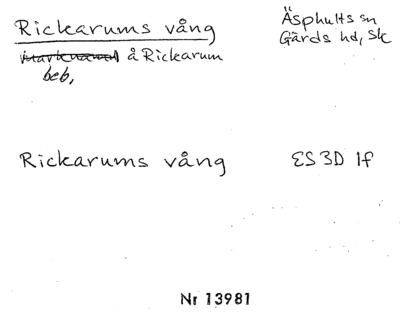 Rickarums vång
Äsphults sn
Gärds hd, Sk
å Rickarum
beb,
Rickarums vång
ES 3D 1f
Nr 13981